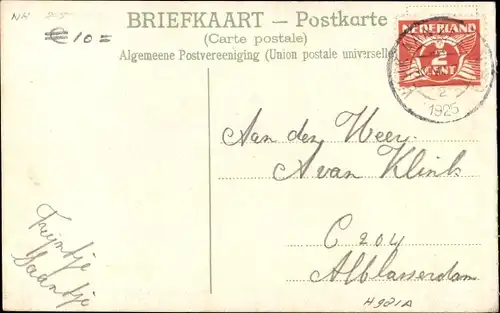 NH 25-
€ 10 =
BRIEFKAART — Postkarte
(Carte postale)
Algemeene Postvereeniging (Union postale universelle)
NEDERLAND
2
CENT
2
1925
Aan den Heer
A van Klink
C 204
Alblasserdam
Trijntje
Saantje
H 921A